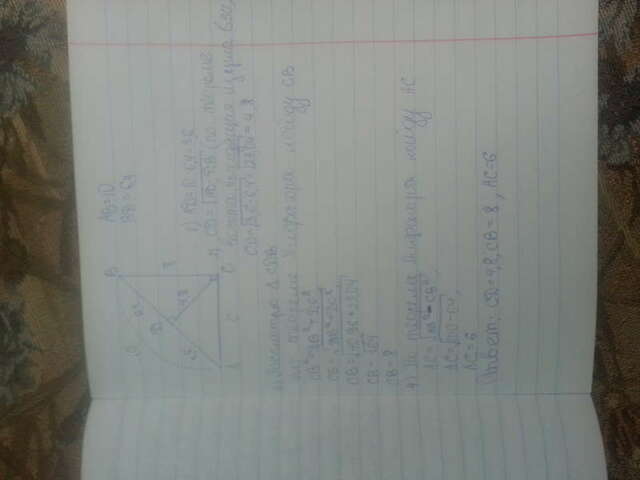 AB=10
BD=6,4
B
6,4
D
4,8
8
A
C
1) AD=10-6,4=3,6
2) CD=√AD·DB (по теореме
CD=√3,6·6,4=√23,04=4,8
3) Рассмотрю Δ CDB
по теореме Пифагора найду CB
CB²=DB²+DC²
CB=√DB²+DC²
CB=√40,96+23,04
CB=√64
CB=8
4) По теореме Пифагора найду AC
AC=√AB²-CB²,
AC=√100-64,
AC=6
Ответ: CD=4,8, CB=8, AC=6